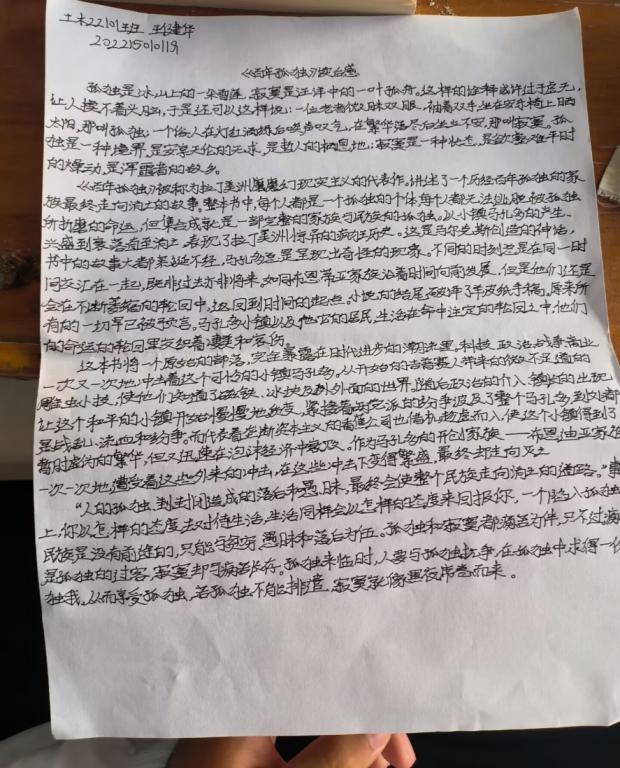 土木22101班
202215010119
《百年孤独》读后感
孤独是冰山上的一朵雪莲，寂寞是汪洋中的一叶孤舟。这样的诠释或许过于虚无，
让人摸不着头脑，于是还可以这样说：一位老者微眯双眼，袖着双手，坐在安乐椅上晒
太阳，那叫孤独；一个俗人在灯红酒绿后唉声叹气，在繁华落尽后坐立不安，那叫寂寞。孤
独是一种境界，是安享天伦的无求，是哲人的栖息地；寂寞是一种状态，是欲望难平时
的燥动，是浑噩者的故乡。
《百年孤独》被称为拉丁美洲魔幻现实主义的代表作，讲述了一个历经百年孤独的家
族最终走向消亡的故事。整本书中，每个人都是一个孤独的个体，每个人都无法逃脱被孤独
所折磨的命运，但集合成就是一部完整的家族与民族的孤独。以小镇马孔多的产生、
兴盛到衰落而至消亡，表现了拉丁美洲惊异的疯狂历史。这是马尔克斯创造的神话，
书中的故事大都荒诞不经，马孔多总是呈现出奇怪的现象。不同的时刻总是在同一时
间交汇在一起，既非过去亦非将来。如同布恩蒂亚家族沿着时间向前发展，但是他们还是
会在不断萎缩的轮回中，返回到时间的起点。小说的结尾破译了羊皮纸手稿，原来所
有的一切早已被预言。马孔多小镇以及他它的居民，生活在命中注定的轮回之中，他们
的命运的轮回里交织着凄美和客伤。
这本书将一个原始的部落，完全暴露在时代进步的潮流里。科技、政治、战争、商业
一次又一次地冲击着这个可怜的小镇马孔多。从开始的吉普赛人带来的微不足道的
雕虫小技，使他们知道了磁铁、冰块及外面的世界，随后政治的介入、镇长的出现
让这个和平的小镇开始慢慢地改变，紧接着两党派的纷争波及了整个马孔多，到处都
是战乱、流血和纷争。而代表着垄断资本主义的香蕉公司也借机趁虚而入，使这个小镇得到了
暂时虚伪的繁华，但又迅速在泡沫经济中衰败。作为马孔多的开创家族——布恩迪亚家族
一次一次地遭受着这些外来的冲击，在这些冲击下变得繁盛，最终却走向灭亡
“人的孤独、封闭造成的落后和愚昧，最终会使整个民族走向消亡的道路。”事
上，你以怎样的态度去对待生活，生活同样会以怎样的态度来回报你，一个陷入孤独
民族是没有前途的，只能与贫穷、愚昧和落后为伍。孤独和寂寞都与痛苦为伴，只不过痛
是孤独的过客，寂寞却与痛苦长存。孤独来临时，人要与孤独抗争，在孤独中求得一份
独我，从而享受孤独，若孤独不能排遣，寂寞就像黑夜席卷而来。